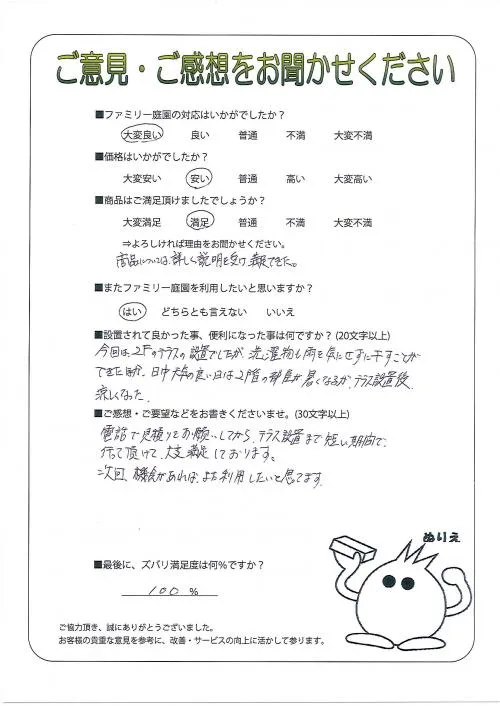 ご意見・ご感想をお聞かせください
■ファミリー庭園の対応はいかがでしたか？
大変良い 良い 普通 不満 大変不満
■価格はいかがでしたか？
大変安い 安い 普通 高い 大変高い
■商品はご満足頂けましたでしょうか？
大変満足 満足 普通 不満 大変不満
⇒よろしければ理由をお聞かせください。
商品については、詳しく説明を受け、満足できた。
■またファミリー庭園を利用したいと思いますか？
はい どちらとも言えない いいえ
■設置されて良かった事、便利になった事は何ですか？(20文字以上)
今回は、2Fのテラスの設置でしたが、洗濯物も雨を気にせずに干すことが
できたほか、日中天気の良い日は2階の部屋が暑くなるが、テラス設置後、
涼しくなった。
■ご感想・ご要望などをお書きくださいませ。(30文字以上)
電話で見積りをお願いしてから、テラス設置まで短い期間で、
行って頂けて、大変満足しております。
次回、機会があれば、また利用したいと思ってます。
ぬりえ
■最後に、ズバリ満足度は何％ですか？
100 %
ご協力頂き、誠にありがとうございました。
お客様の貴重な意見を参考に、改善・サービスの向上に活かして参ります。